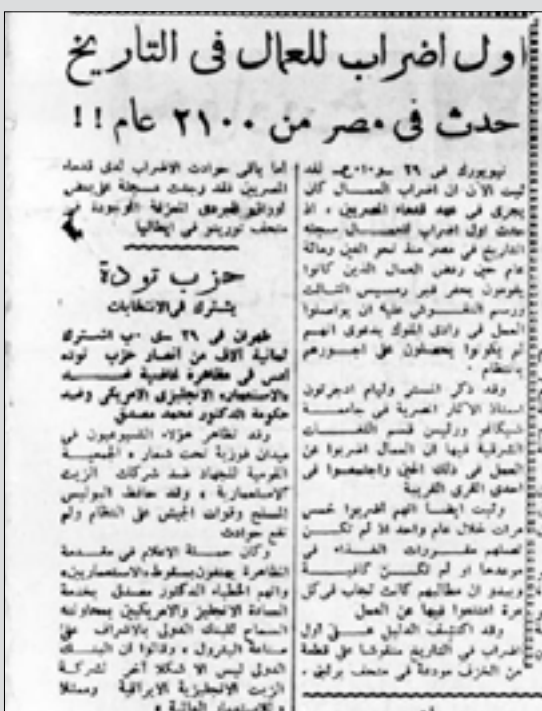 اول اضراب للعمال فى التاريخ
حدث فى مصر من ٢١٠٠ عام !!
نيويورك فى ٢٩
ثبت الآن ان اضراب العمـــال كان
يجرى فى عهد قدماء المصريين ، اذ
حدث اول اضراب للعمـــال سجله
التاريخ فى مصر منذ نحو الفين ومائة
عام حين رفض العمال الذين كانوا
يقومون بحفر قبر رمسيس الثـالث
ورسم النقـــوش عليه ان يواصلوا
العمل فى وادى الملوك بدعوى انهــم
لم يكونوا يحصلون على اجـورهم
بانتظام ٠
وقد ذكر المستر وليام ادجرتون
استاذ الآثار المصرية فى جامعـــة
شيكاغو ورئيس قسم اللغـــات
الشرقية فيها ان العمال اضربوا عن
العمل فى ذلك الحين واجتمعوا فى
احدى القرى القريبة
وثبت ايضـا انهم اضربوا خمس
مرات خلال عام واحد اذ لم تكــن
تصلهم مقـــررات الغــذاء فى
موعدها او لم تكــن كافيـــة
ويبدو ان مطالبهم كانت تجاب فى كل
مرة امتنعوا فيها عن العمل
وقد اكتشف الدليل عــلى أول
اضراب فى التاريخ منقوشا على قطعة
من الخزف مودعة فى متحف برلين ٠
أما باقى حوادث الاضراب لدى قدماء
المصريين فقد وجدت مسجلة على بعض
أوراق البردى الممزقة الموجودة فى
متحف تورينو فى ايطاليا
حزب تودة
يشترك فى الانتخابات
طهران فى ٢٩ اشتـرك
ثمانية آلاف من أنصار حزب توده
أمس فى مظاهرة ضـــد
«الاستعمار» الانجليزى الامريكى وضد
حكومة الدكتور محمد مصدق
وقد تظاهر هؤلاء الشيوعيون فى
ميدان فوزية تحت شعار « الجمعيــة
القومية للجهاد ضد شركات الزيت
الاستعمارية » وقد حافظ البوليس
المسلح وقوات الجيش على النظام ولم
تقع حوادث
وكان حمــلة الاعلام فى مقــدمة
المظاهرة يهتفون بسقوط «الاستعماريين»
واتهم الخطباء الدكتور مصدق بخدمة
السادة الانجليز والامريكيين بمحاولته
السماح للبنك الدولى بالاشراف على
صناعة البترول ، وقالوا ان البنــك
الدولى ليس الا شكلا آخر لشركة
الزيت الانجليزية الايرانية وممثلا